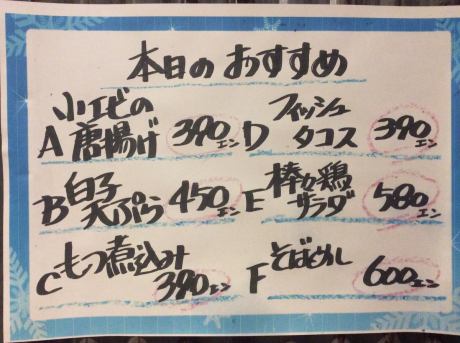 本日のおすすめ
小エビの
A 唐揚げ 390エン
B 白子
天ぷら 450エン
C もつ煮込み
390エン
D フィッシュ
タコス 390エン
E 棒々鶏
サラダ 580エン
F そばめし
600エン